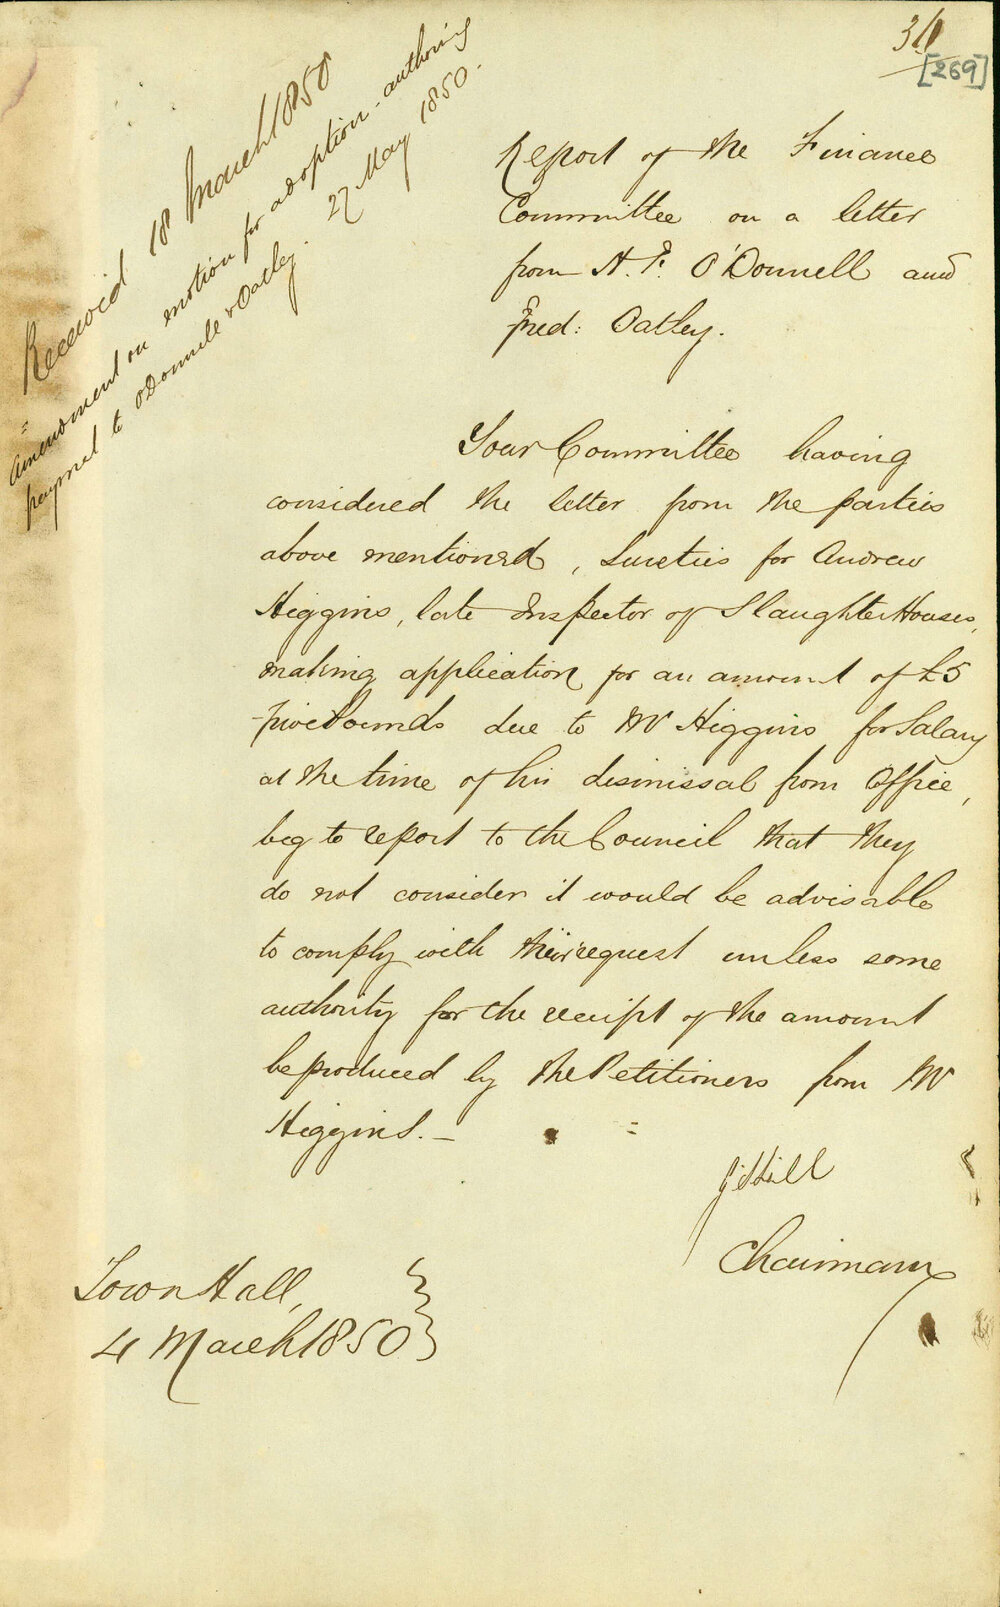 [269]
Received 18 March 1850
Amendment on motion for adoption - authoring
paymet to O'Donnell & Oatley. 27 May 1850.
Report of the Finance
Committee on a letter
from H. F. O'Donnell and
Fred: Oatley.
Your Committee having
considered the letter from the parties
above mentioned, Sureties for Andrew
Higgins, late Inspector of Slaughter Houses,
making application for an amount of £5
five Pounds due to Mr Higgins for Salary
at the time of his dismissal from Office,
beg to report to the Council that they
do not consider it would be advisable
to comply with their request unless some
authority for the receipt of the amount
be produced by the Petitioners from Mr
Higgins. —
J Hill
Chairman
Town Hall,
4 March 1850